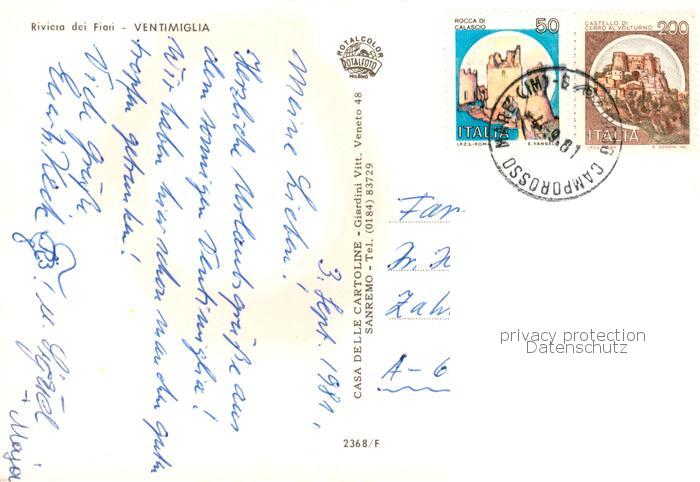 Riviera dei Fiori - VENTIMIGLIA
3. Sept. 1981,
Meine Lieben!
Herzliche Urlaubsgrüße aus
dem sonnigen Ventimiglia!
Wir haben hier schon manchen guten
tropfen getrunken!
Viele Grüße
u.
+ Maja
ROTALCOLOR
ROTALFOTO
MILANO
CASA DELLE CARTOLINE - Giardini Vitt. Veneto 48
SANREMO - Tel. (0184) 83729
2368/F
ROCCA DI
CALASCIO
50
ITALIA
I.P.Z.S.-ROMA
CASTELLO DI
CERRO AL VOLTURNO
200
ITALIA
CAMPOROSSO MARE (IM)
Fa
A-6
privacy protection
Datenschutz